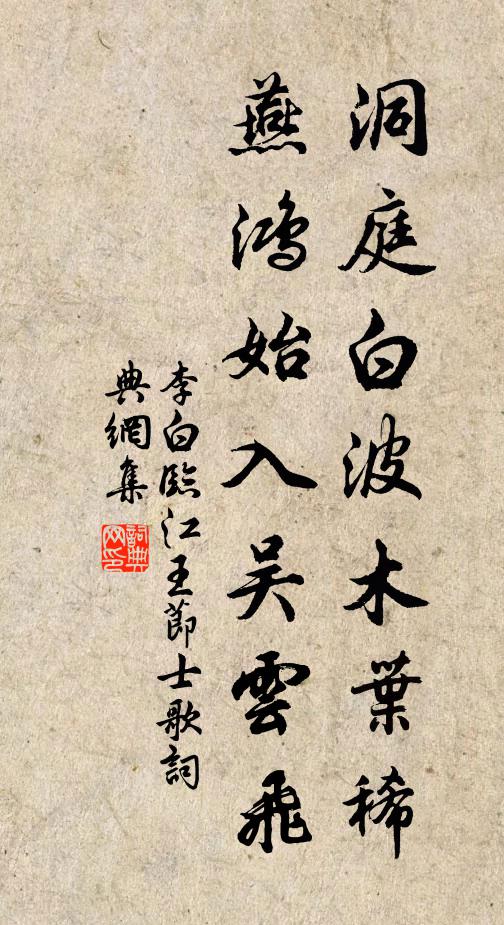 洞庭白波木葉稀
燕鴻始入吴雲飛
李白臨江王節士歌詞
典網集
詞典网印